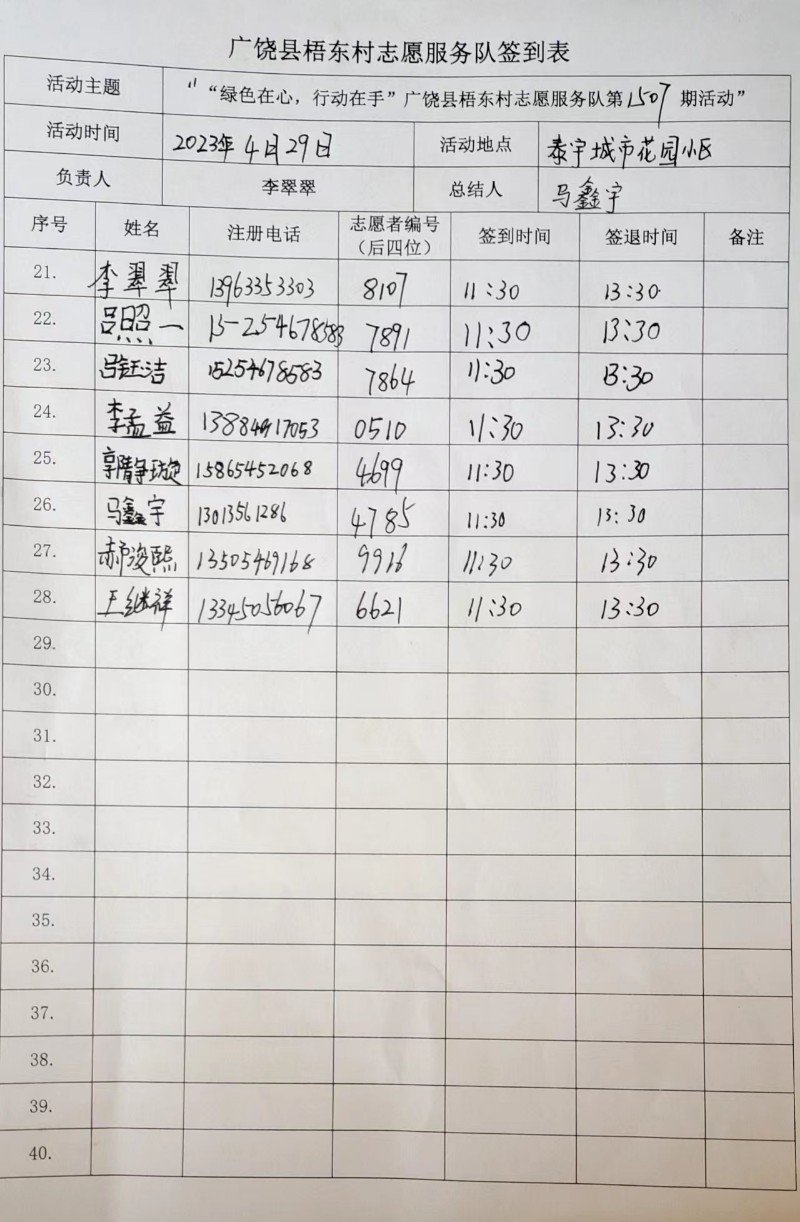 广饶县梧东村志愿服务队签到表
活动主题 “绿色在心，行动在手”广饶县梧东村志愿服务队第1507期活动”
活动时间 2023年4月29日 活动地点 泰宇城市花园小区
负责人 李翠翠 总结人 马鑫宇
序号 姓名 注册电话 志愿者编号（后四位） 签到时间 签退时间 备注
21. 李翠翠 13963353303 8107 11:30 13:30
22. 吕照一 15-254678583 7891 11:30 13:30
23. 吕钰洁 15254678583 7864 11:30 13:30
24. 李孟益 0510 11:30 13:30
25. 郭静璇 15865452068 4699 11:30 13:30
26. 马鑫宇 13013561286 4785 11:30 13:30
27. 郝浚熙 13505469168 9916 11:30 13:30
28. 王继祥 13345056067 6621 11:30 13:30
29.
30.
31.
32.
33.
34.
35.
36.
37.
38.
39.
40.